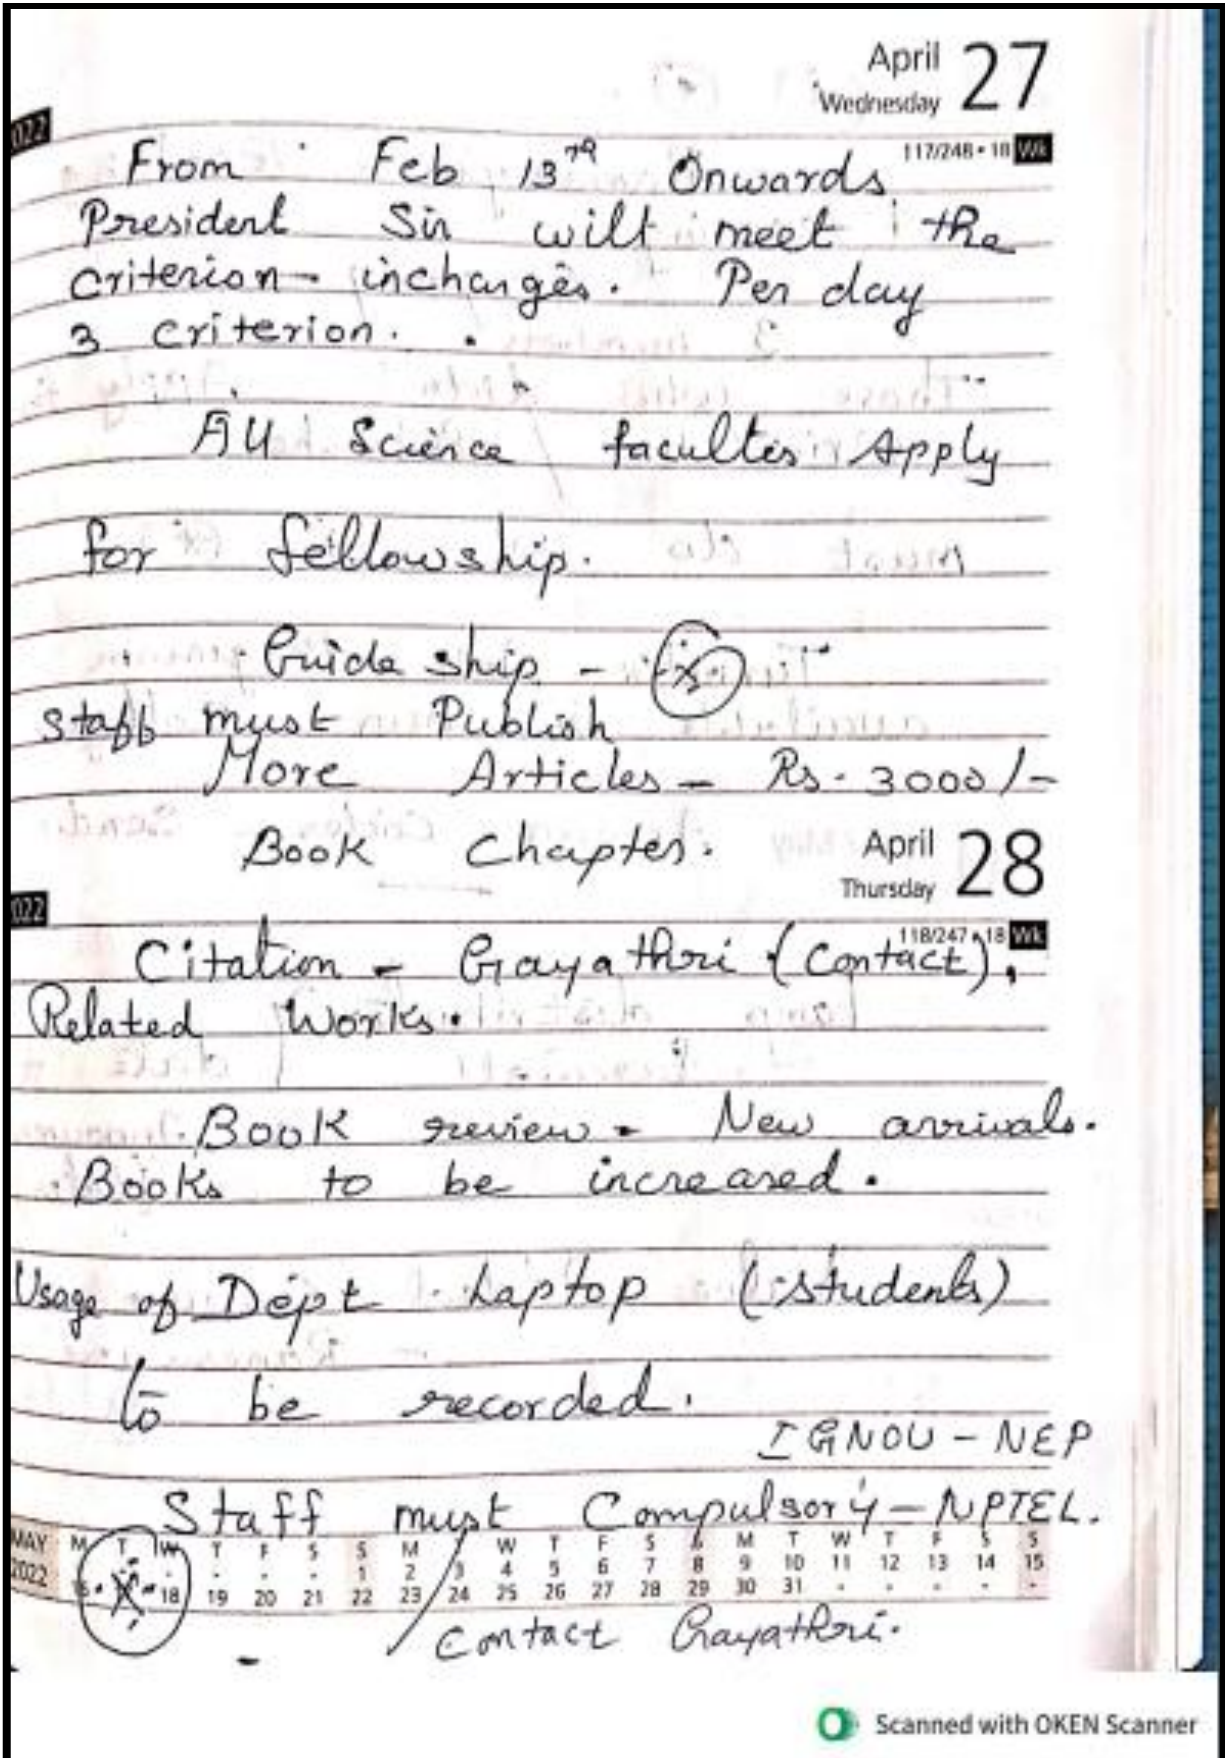 April 27
Wednesday
2022
117/248 • 18 Wk
From Feb 13th Onwards
President Sir will meet the
criterion - incharges. Per day
3 criterion.
All Science faculties Apply
for fellowship.
Guide ship -
Staff must Publish
More Articles - Rs. 3000/-
Book Chapter.
April 28
Thursday
2022
118/247 • 18 Wk
Citation - Gayathri (Contact),
Related Works.
Book review - New arrivals.
Books to be increased.
Usage of Dept Laptop (students)
to be recorded.
IGNOU - NEP
Staff must Compulsory - NPTEL.
MAY M T W T F S S M W T F S S M T W T F S S
2022 - - - - 1 2 3 4 5 6 7 8 9 10 11 12 13 14 15
18 19 20 21 22 23 24 25 26 27 28 29 30 31 - - - - -
Contact Gayathri.
Scanned with OKEN Scanner